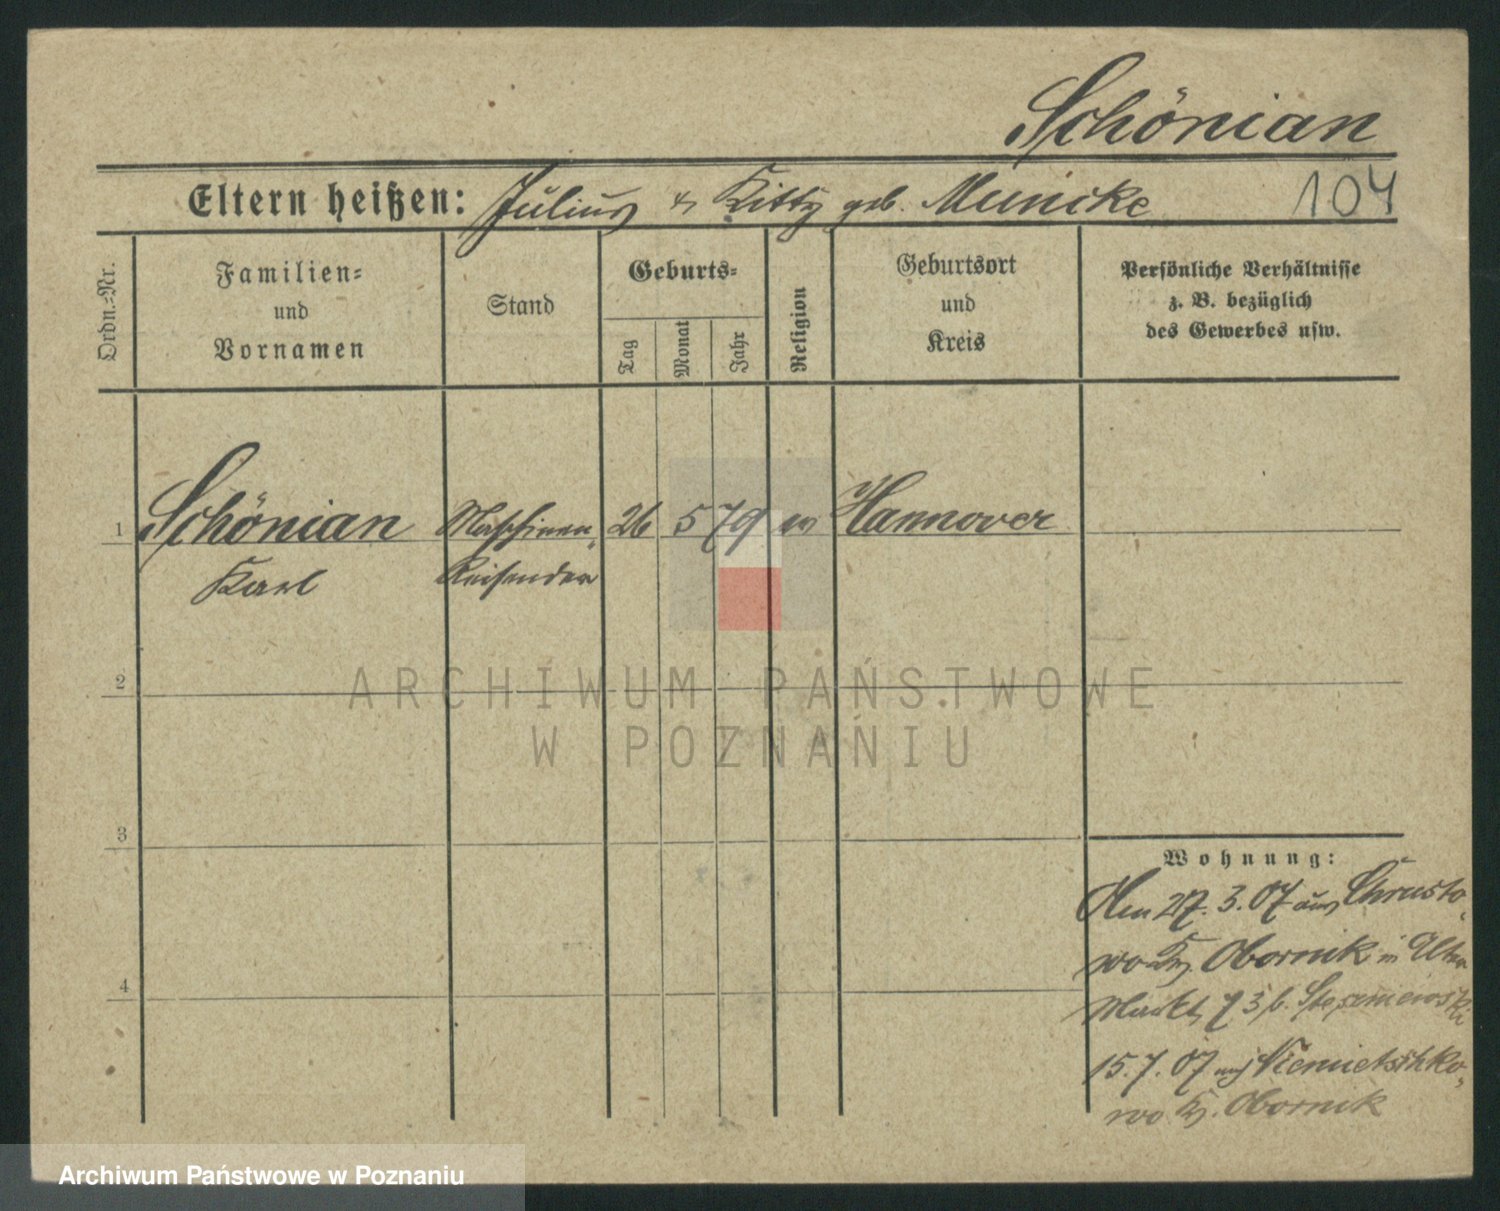 Schönian
Eltern heißen: Julius & Kitty geb. Municke
104
Ordn.-Nr.
Familien-
und
Vornamen
Stand
Geburts-
Tag
Monat
Jahr
Religion
Geburtsort
und
Kreis
Persönliche Verhältnisse
z. B. bezüglich
des Gewerbes usw.
1 Schönian Maschinen- 26 5 79 Hannover
Karl Reisender
2
ARCHIWUM PAŃSTWOWE
W POZNANIU
3
4
Wohnung:
27.3.07 aus Chrusto-
wo Kr. Obornik in Alter
Markt 73 b.
15.7.07 nach Niemietschko-
wo Kr. Obornik
Archiwum Państwowe w Poznaniu